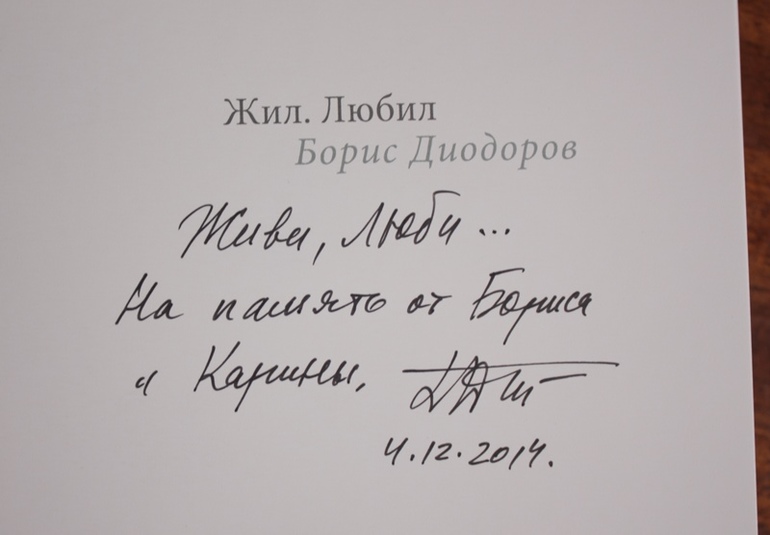 Жил. Любил
Борис Диодоров
Живи, Люби...
На память от Бориса
и Карины,
4.12.2014.